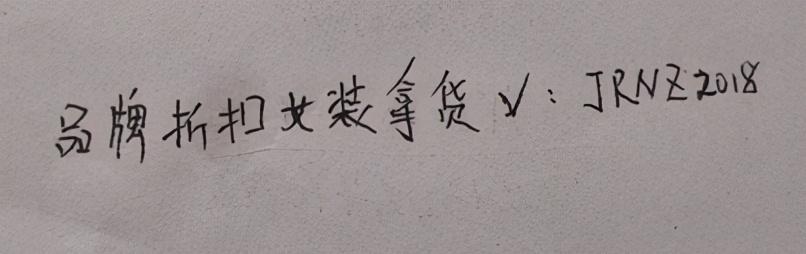 品牌折扣女装拿货√：JRNZ2018